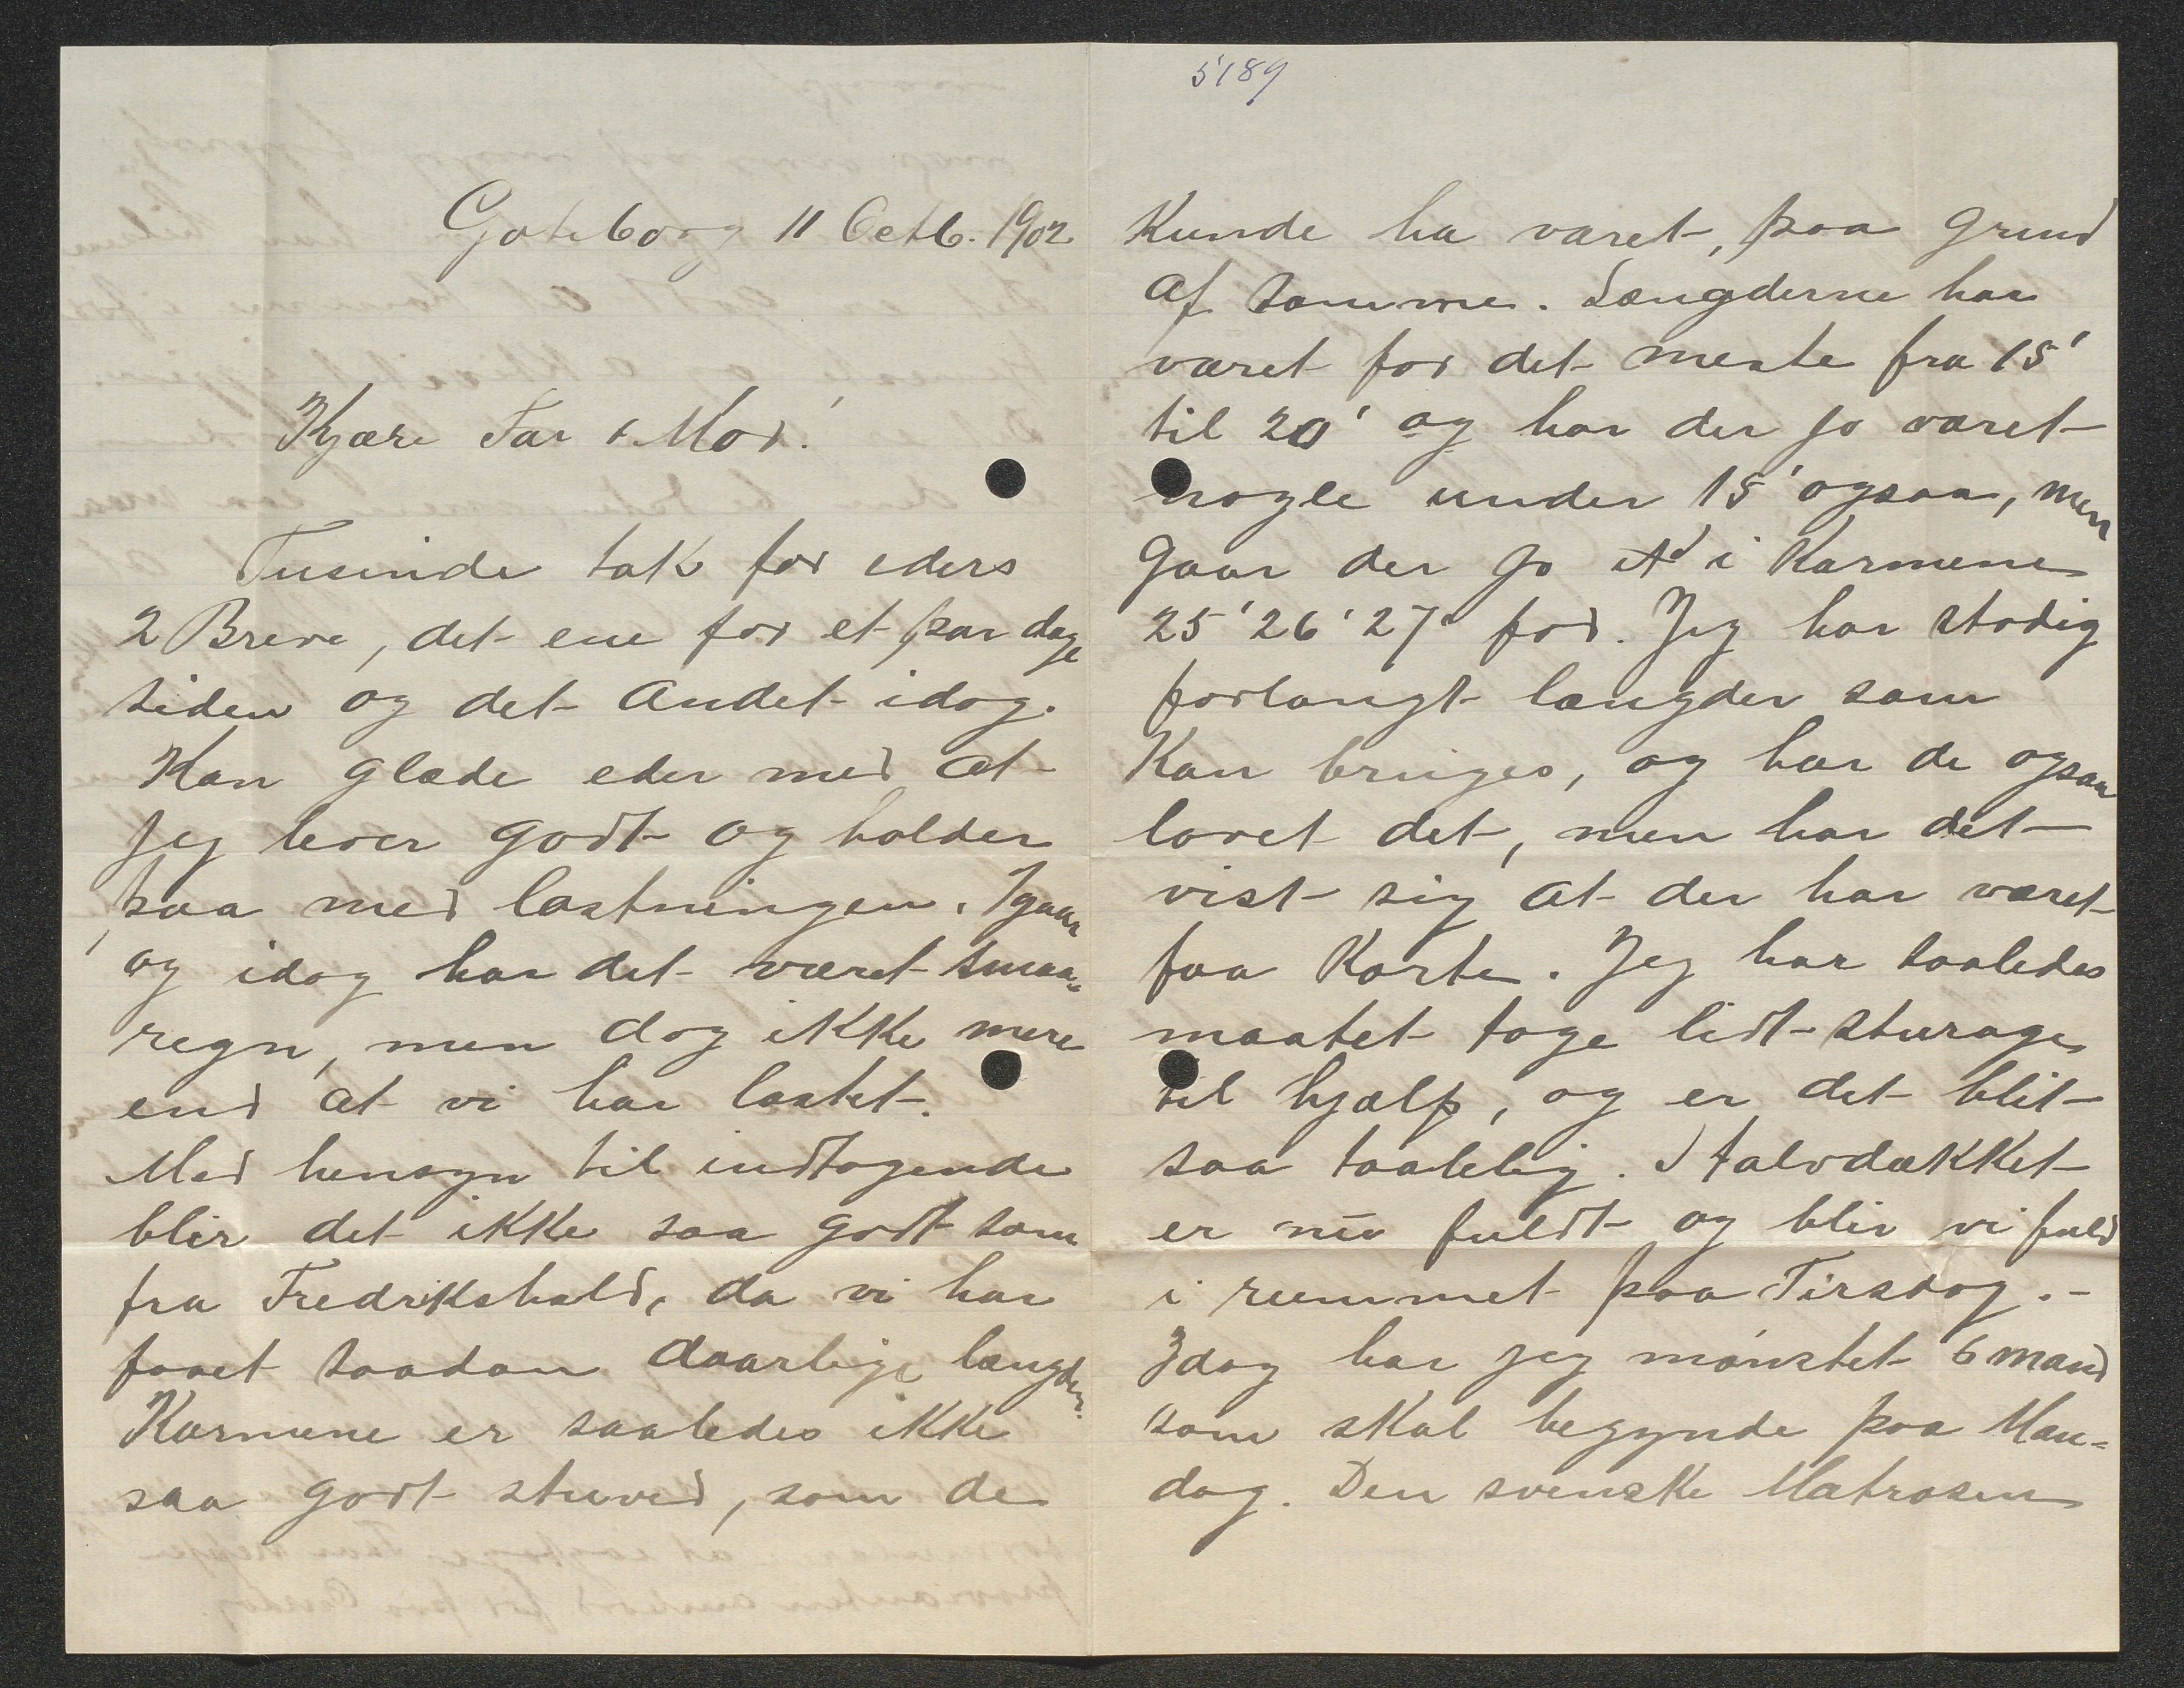 Goteborg 11 Octb. 1902
Kjære Far & Mor!
Tusinde tak for eders
2 Breve, det ene for et par dage
siden og det andet idag.
Kan glæde eder med at
jeg lever godt og holder
paa med lastningen. Igaar
og idag har det været smaa=
regn, men dog ikke mere
end at vi har lastet.
Med hensyn til indtagende
blir det ikke saa godt som
fra Fredrikshald, da vi har
faaet saadan daarlige længder.
Karmene er saaledes ikke
saa godt stuved, som de
5189
Kunde ha været, paa grund
af samme. Længderne har
været for det meste fra 15'
til 20' og har der jo været
nogle under 15' ogsaa, men
gaar der jo i Karmene
25' 26' 27' fod. Jeg har stadig
forlangt længder som
Kan bruges, og har de ogsaa
lovet det, men har det
vist sig at der har været
faa Korte. Jeg har saaledes
maatet tage lidt sturage
til hjælp, og er det blit
saa taalelig. Halvdækket
er nu fuldt og blir vi fuld
i rummet paa Tirsdag.-
Idag har jeg mønstet 6 mand
som skal begynde paa Man=
dag. Den svenske Matrosen